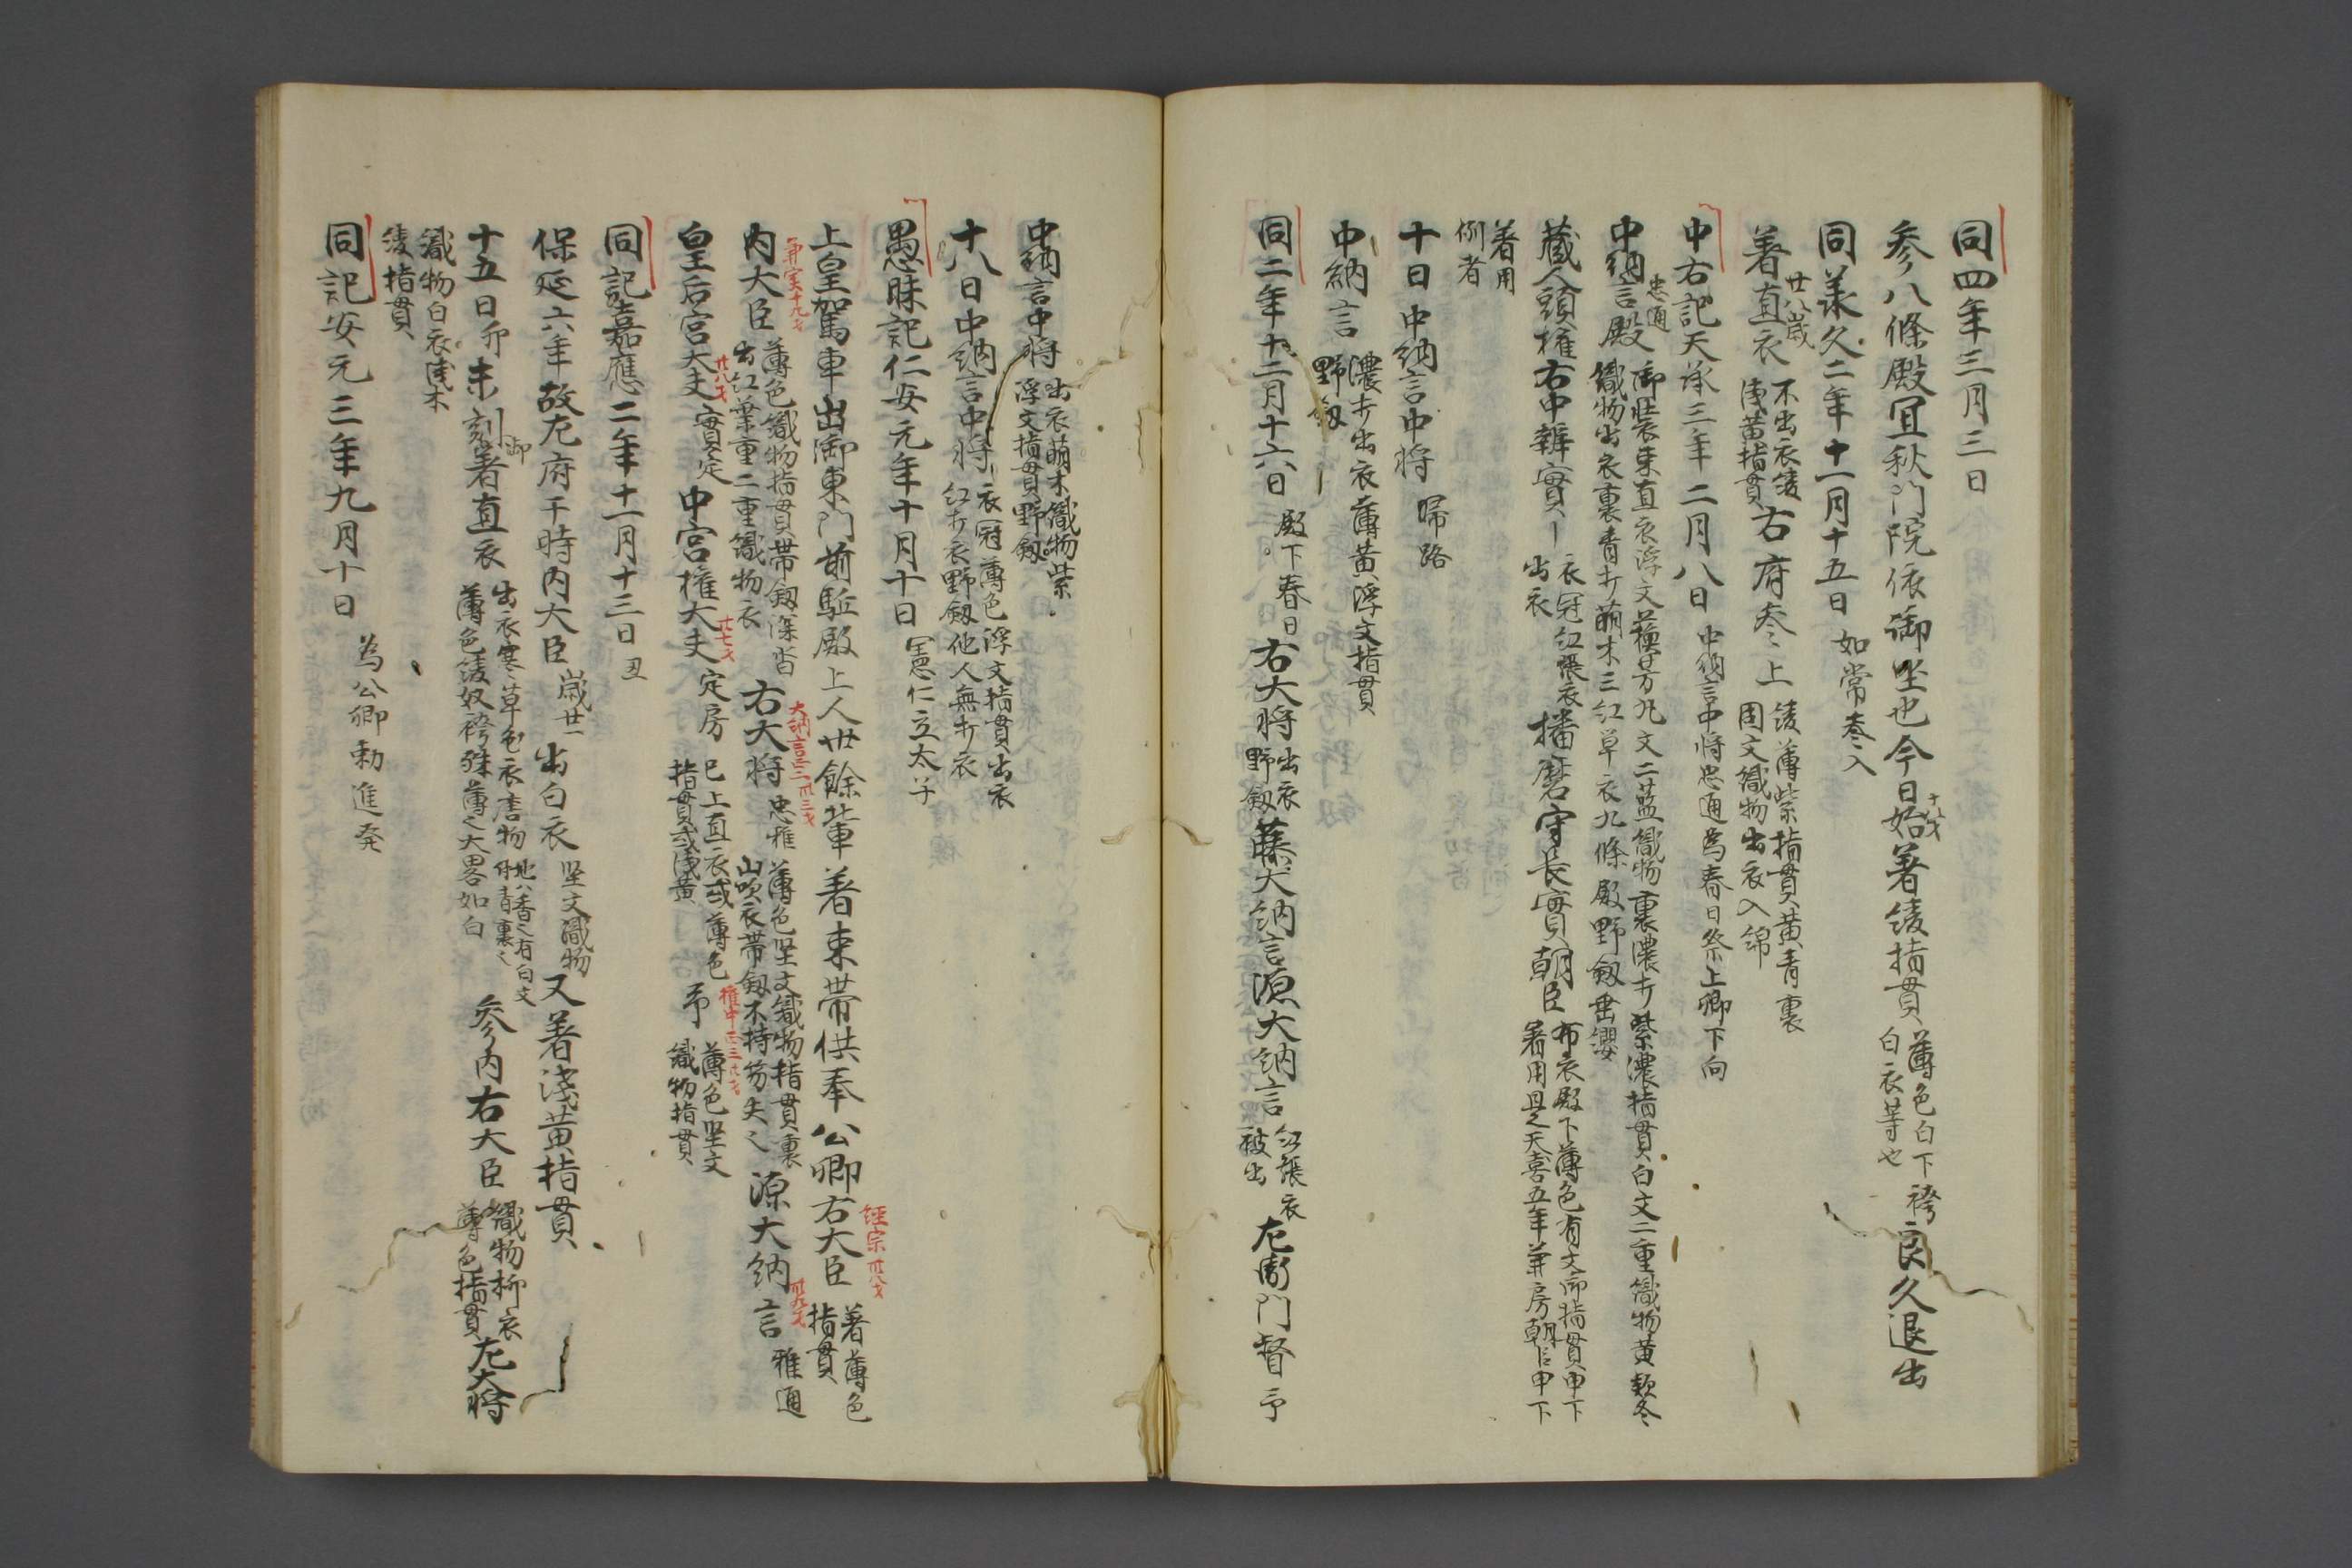 同四年三月三日
参八條殿宜秋門院依御坐也今日始十八才著綾指貫薄色白下袴白衣等也良久退出
同承久二年十一月十五日如常参入
廿八歳
著直衣不出衣綾浅黄指貫右府参上綾薄紫指貫黄青裏固文織物出衣入綿
中右記天承三年二月八日中納言中将忠通為春日祭上卿下向
忠通
中納言殿御装束直衣浮文蘓芳丸文二藍織物裏濃打紫濃指貫白文二重織物黄款冬織物出衣裏青打萌木三紅単衣九條殿野剱垂纓
蔵人頭権右中辨實ー衣冠紅張衣出衣播磨守長實朝臣布衣殿下薄色有文御指貫申下著用是天喜五年兼房朝臣申下
著用例者
十日中納言中将歸路
中納言濃打出衣薄黄浮文指貫野剱
同二年十二月十六日殿下春日右大将出衣野剱藤大納言源大納言紅張衣被出左衛門督予
中納言中将出衣萌木織物紫浮文指貫野剱
十八日中納言中将ー衣冠薄色浮文指貫出衣紅打衣野剱他人無打衣
愚昧記仁安元年十月十日憲仁立太子
上皇駕車出御東門前駈殿上人卅餘輩著束帯供奉公卿右大臣経宗卅八才著薄色指貫
内大臣兼実十九才薄色織物指貫帯剱深沓出紅葉重二重織物衣右大将大納言忠雅薄色堅文織物指貫裏山吹衣帯剱不持笏失之源大納言雅通
皇后宮大夫實定廿八才中宮権大夫廿七才定房已上直衣或薄色指貫或浅黄予薄色堅文織物指貫
同記嘉應二年十一月十三日丑
保延六年故左府于時内大臣歳廿一出白衣堅文織物又著浅黄指貫
十五日卯未刻御著直衣出衣寒草色衣唐物薄色綾奴袴殊薄之大略如白参内右大臣織物柳衣薄色指貫左大将
織物白衣浅木綾指貫
同記安元三年九月十日為公卿勅進発